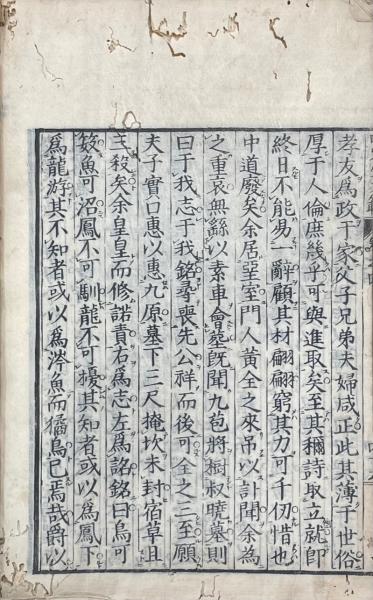 孝友爲政于家父子兄弟夫婦咸正此其薄于世俗
厚于人倫庶幾乎可與進取矣至其稱詩取立就卽
終日不能易一辭顧其材翩翩窮其力可千仞惜也
中道廢矣余居堊室門人黃全之來吊以訃聞余爲
之重哀無繇以素車會葬旣聞九苞將樹叔曉墓則
曰于我志于我銘尋喪先公祥而後可全之三至願
夫子實口惠以惠九原墓下三尺掩坎未封宿草且
三殺矣余皇皇而修諾責右爲志左爲銘銘曰鳥可
笯魚可沼鳳不可馴龍不可擾其知者或以爲鳳下
爲龍游其不知者或以爲涔魚而㺍鳥已焉哉爵以